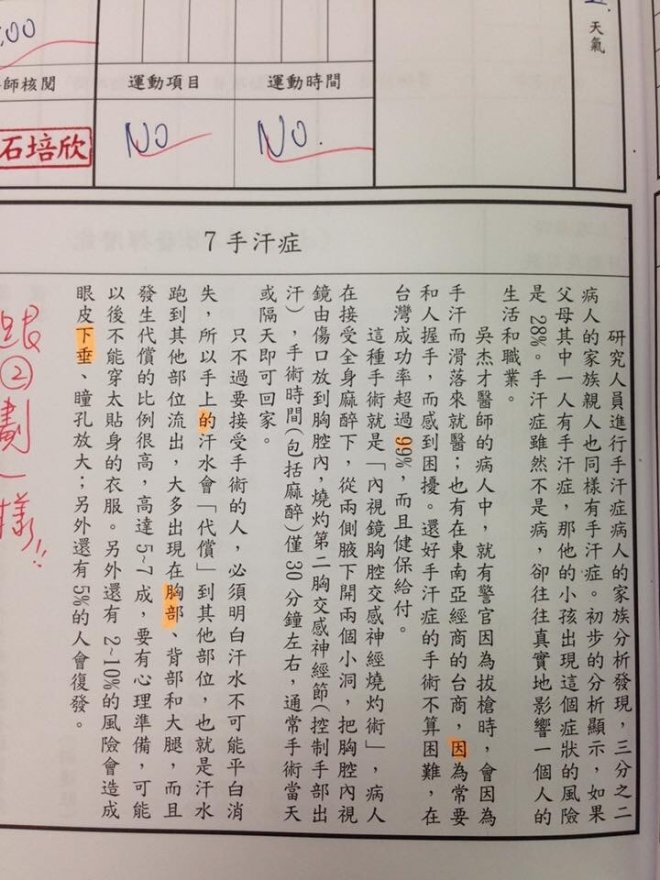 天氣
.00
師核閱
運動項目
運動時間
石培欣
NO
NO.
7 手汗症
研究人員進行手汗症病人的家族分析發現，三分之二
病人的家族親人也同樣有手汗症。初步的分析顯示，如果
父母其中一人有手汗症，那他的小孩出現這個症狀的風險
是 28%。手汗症雖然不是病，卻往往真實地影響一個人的
生活和職業。
吳杰才醫師的病人中，就有警官因為拔槍時，會因為
手汗而滑落來就醫；也有在東南亞經商的台商，因為常要
和人握手，而感到困擾。還好手汗症的手術不算困難，在
台灣成功率超過 99%，而且健保給付。
這種手術就是「內視鏡胸腔交感神經燒灼術」，病人
在接受全身麻醉下，從兩側腋下開兩個小洞，把胸腔內視
鏡由傷口放到胸腔內，燒灼第二胸交感神經節(控制手部出
汗)，手術時間(包括麻醉)僅 30 分鐘左右，通常手術當天
或隔天即可回家。
只不過要接受手術的人，必須明白汗水不可能平白消
失，所以手上的汗水會「代償」到其他部位，也就是汗水
跑到其他部位流出，大多出現在胸部、背部和大腿，而且
發生代償的比例很高，高達 5~7 成，要有心理準備，可能
以後不能穿太貼身的衣服。另外還有 2~10%的風險會造成
眼皮下垂、瞳孔放大；另外還有 5%的人會復發。
跟②劃一樣!!